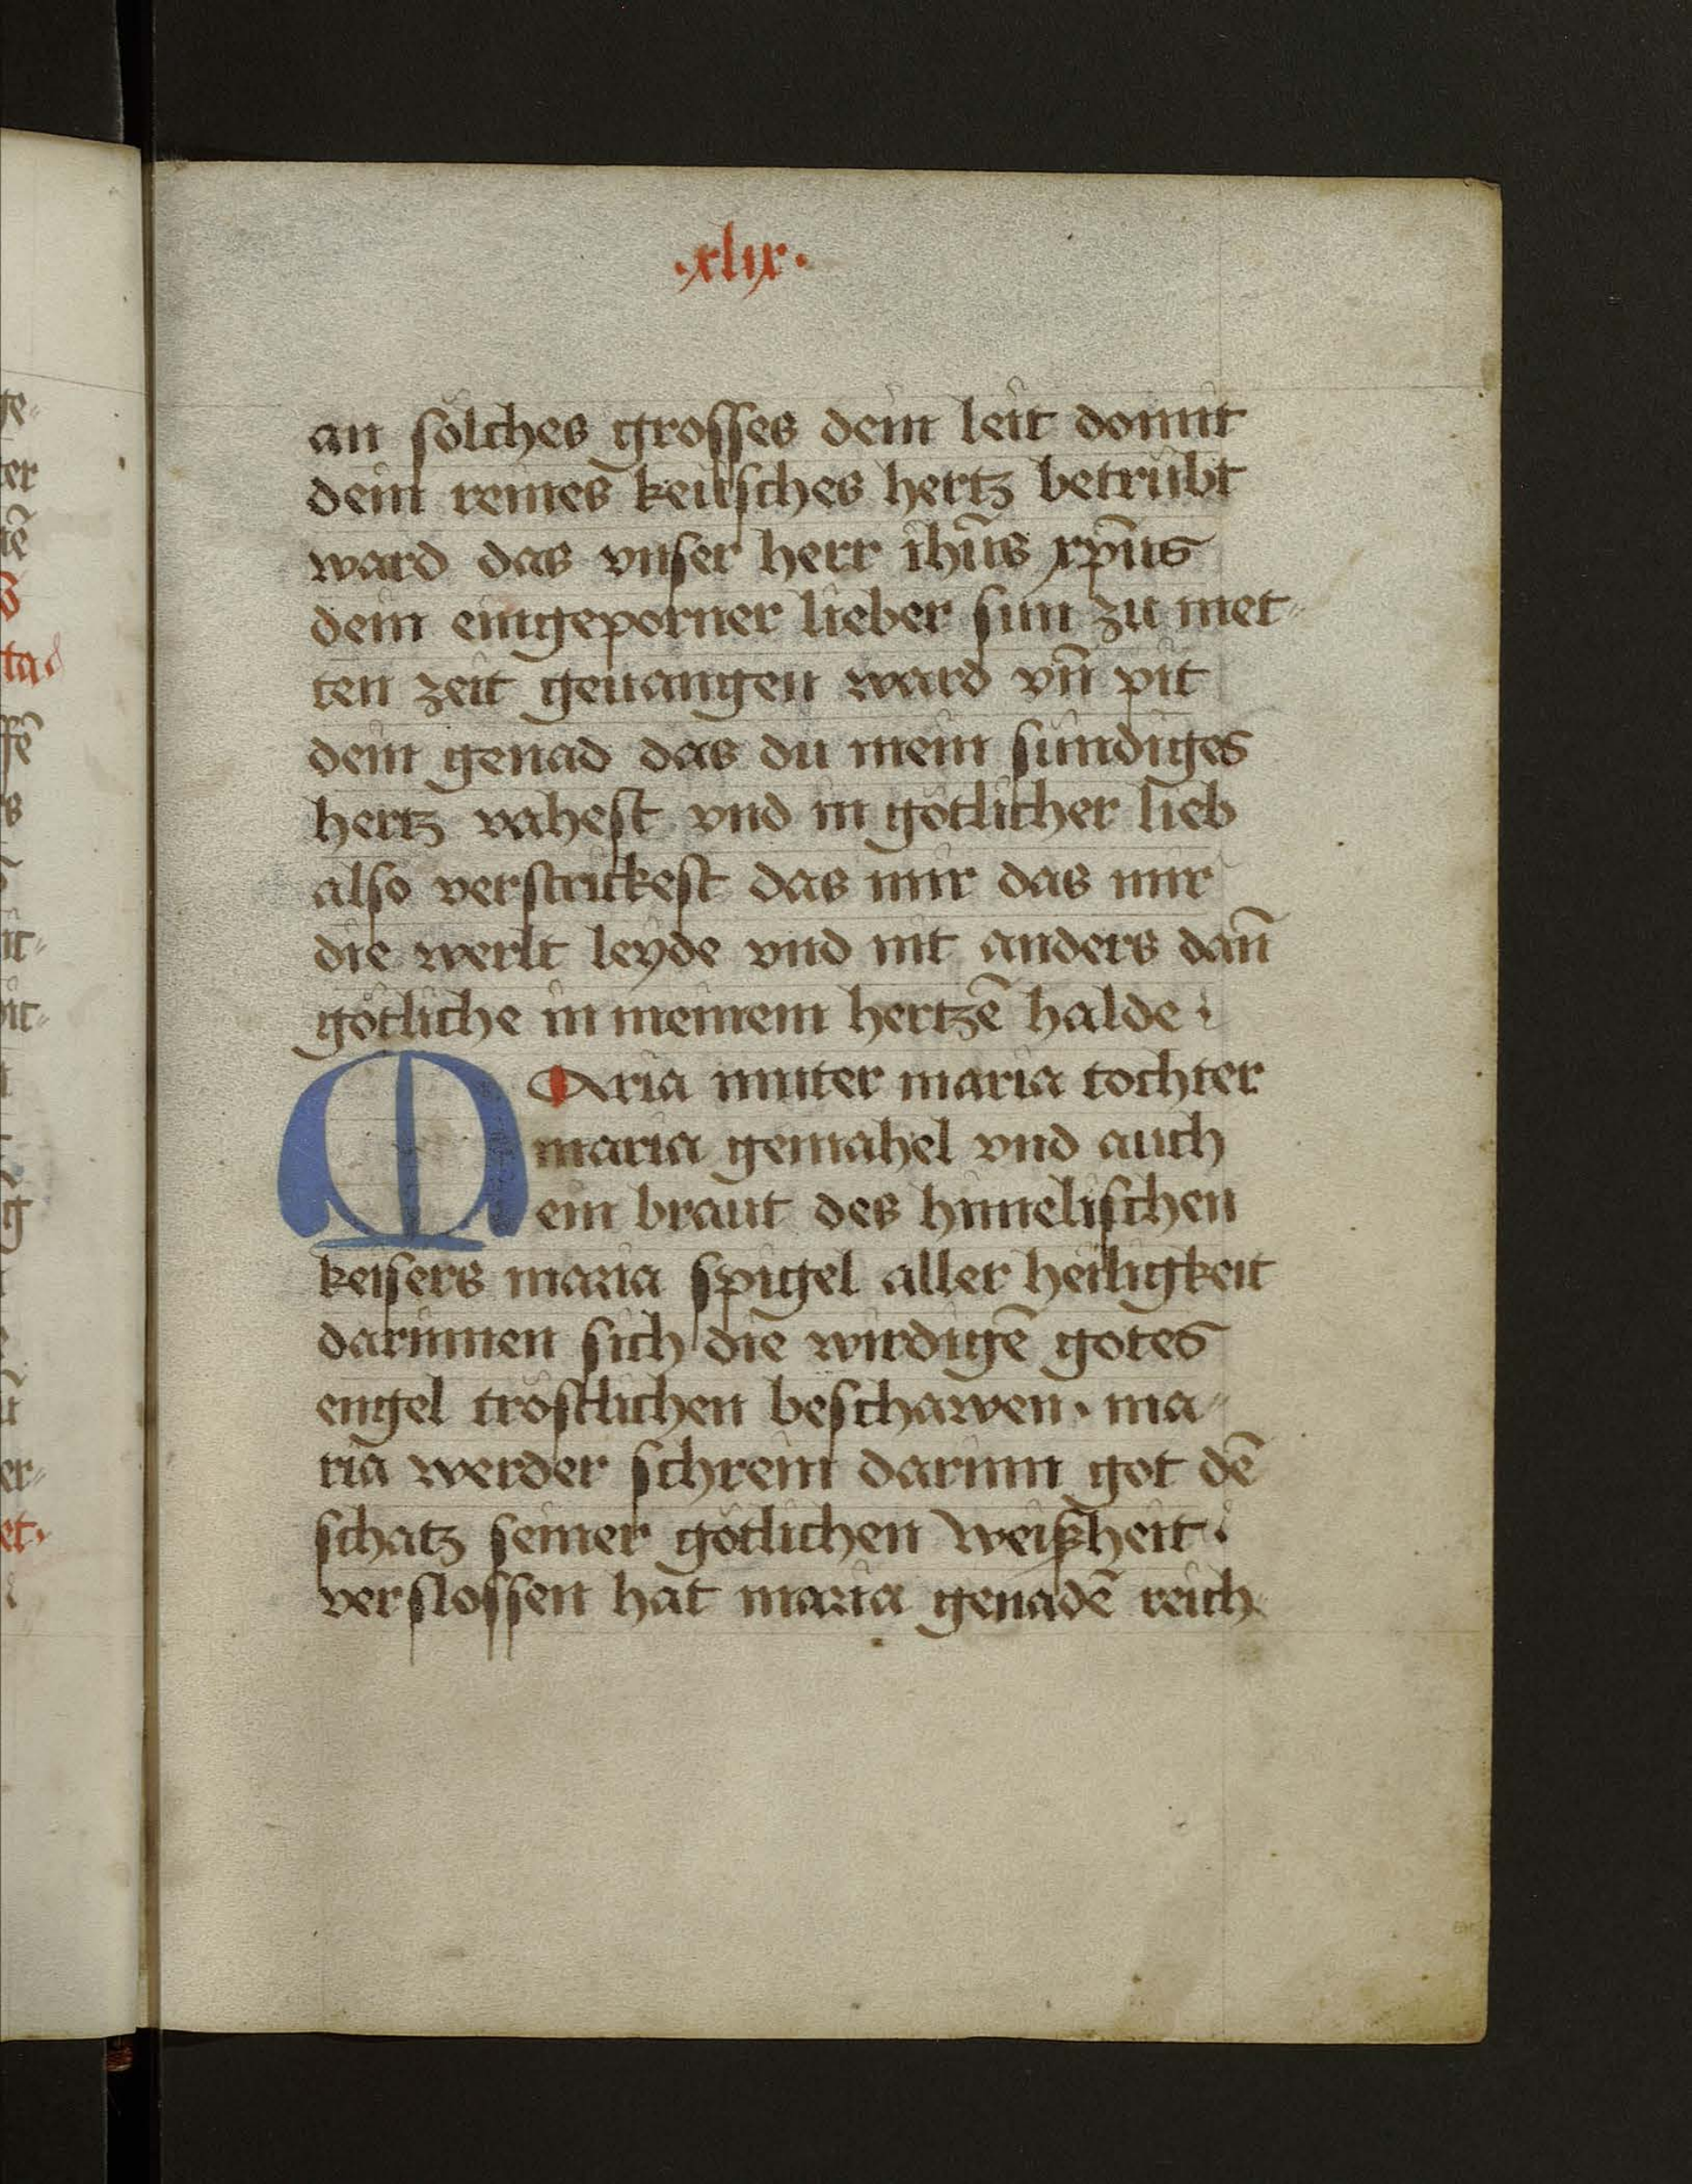 ·xlix·
an sölches grosses dein leit domit
dein reines keusches hertz betrübt
ward das vnser herr ihūs xp̄us
dein eingeporner lieber sun zu met-
ten zeit geuangen ward vn̄ pit
dein genad das du mein sündiges
hertz vahest vnd in götlicher lieb
also verstrickest das mir das mir
die werlt leyde vnd nit anders dan̄
götliche in meinem hertzē halde·
Maria muter maria tochter
maria gemahel vnd auch
ein braut des himelischen
keisers maria spigel aller heiligkeit
darinnen sich die wirdigē gotes
engel tröstlichen beschawen· ma-
ria werder schrein darinn got dē
schatz seiner götlichen weißheit·
verslossen hat maria genadē reich